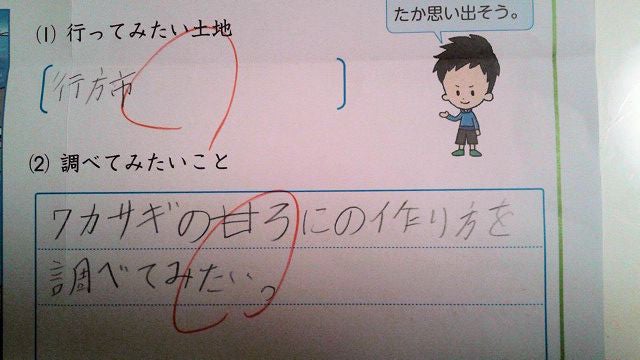 たか思い出そう。
(1) 行ってみたい土地
行方市
(2) 調べてみたいこと
ワカサギの甘ろにの作り方を
調べてみたい。